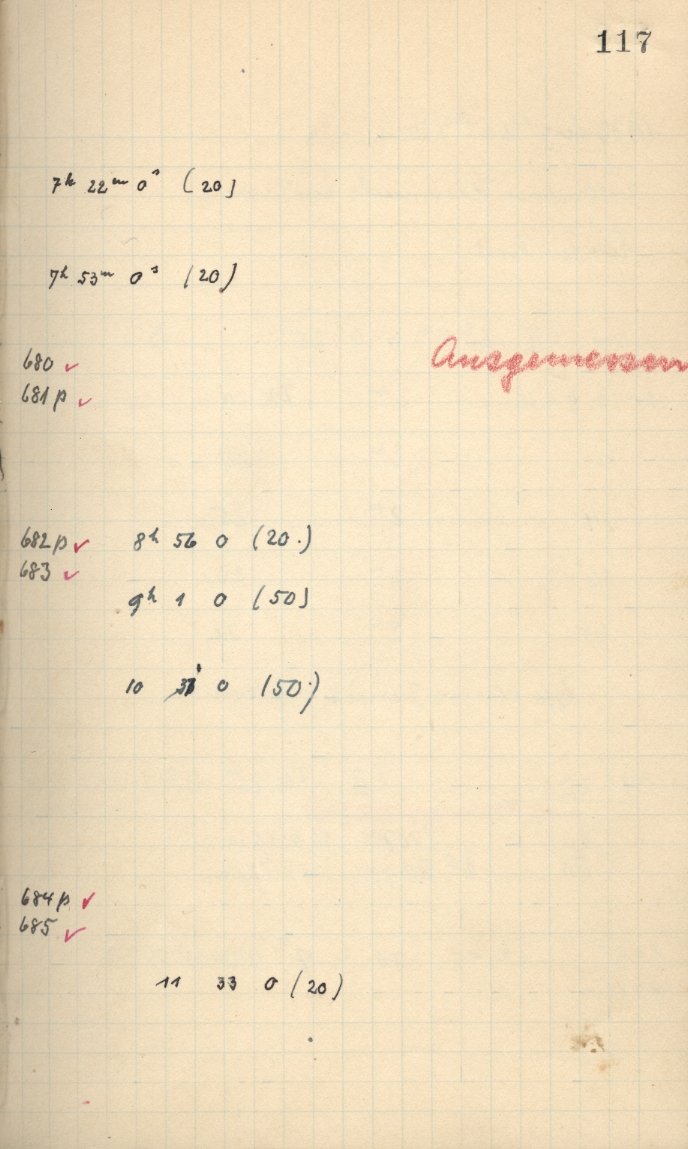 117
7h 22m 0s (20)
7h 53m 0s (20)
680 ✓
Ausgemessen
681 p ✓
682 p ✓ 8h 56 0 (20.)
683 ✓
9h 1 0 (50)
10 0 (50.)
684 p ✓
685 ✓
11 33 0 (20)